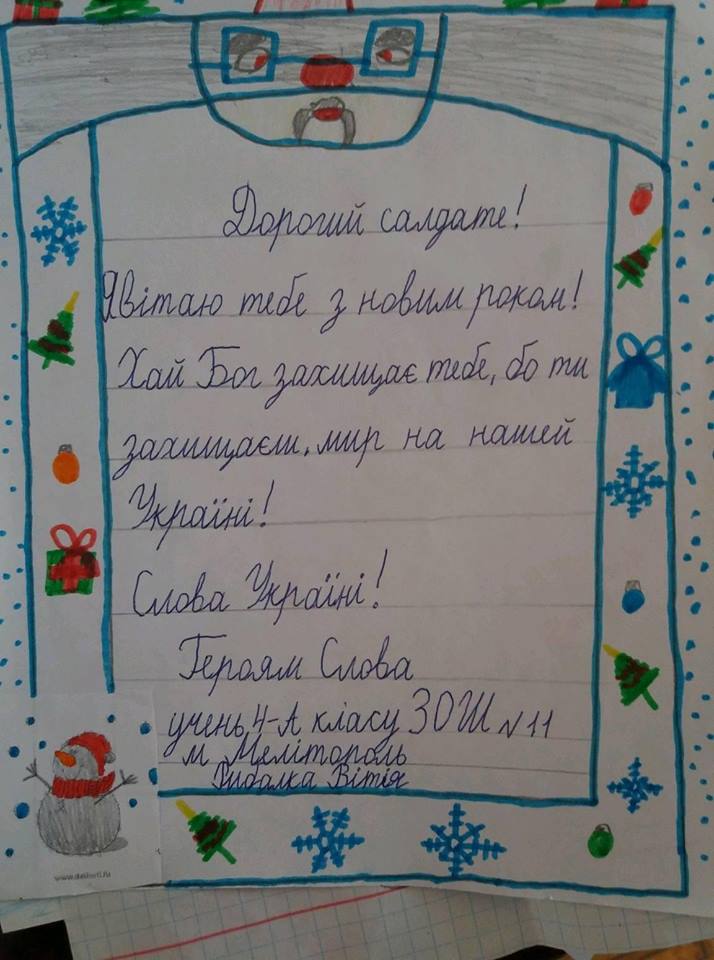 Дорогий салдате!
Явітаю тебе з новим роком!
Хай Бог захищає тебе, бо ти
захищаєш, мир на нашей
Україні!
Слова Україні!
Героям Слова
учень 4-А класу ЗОШ №11
м Мелітополь
Рибалка Вітія